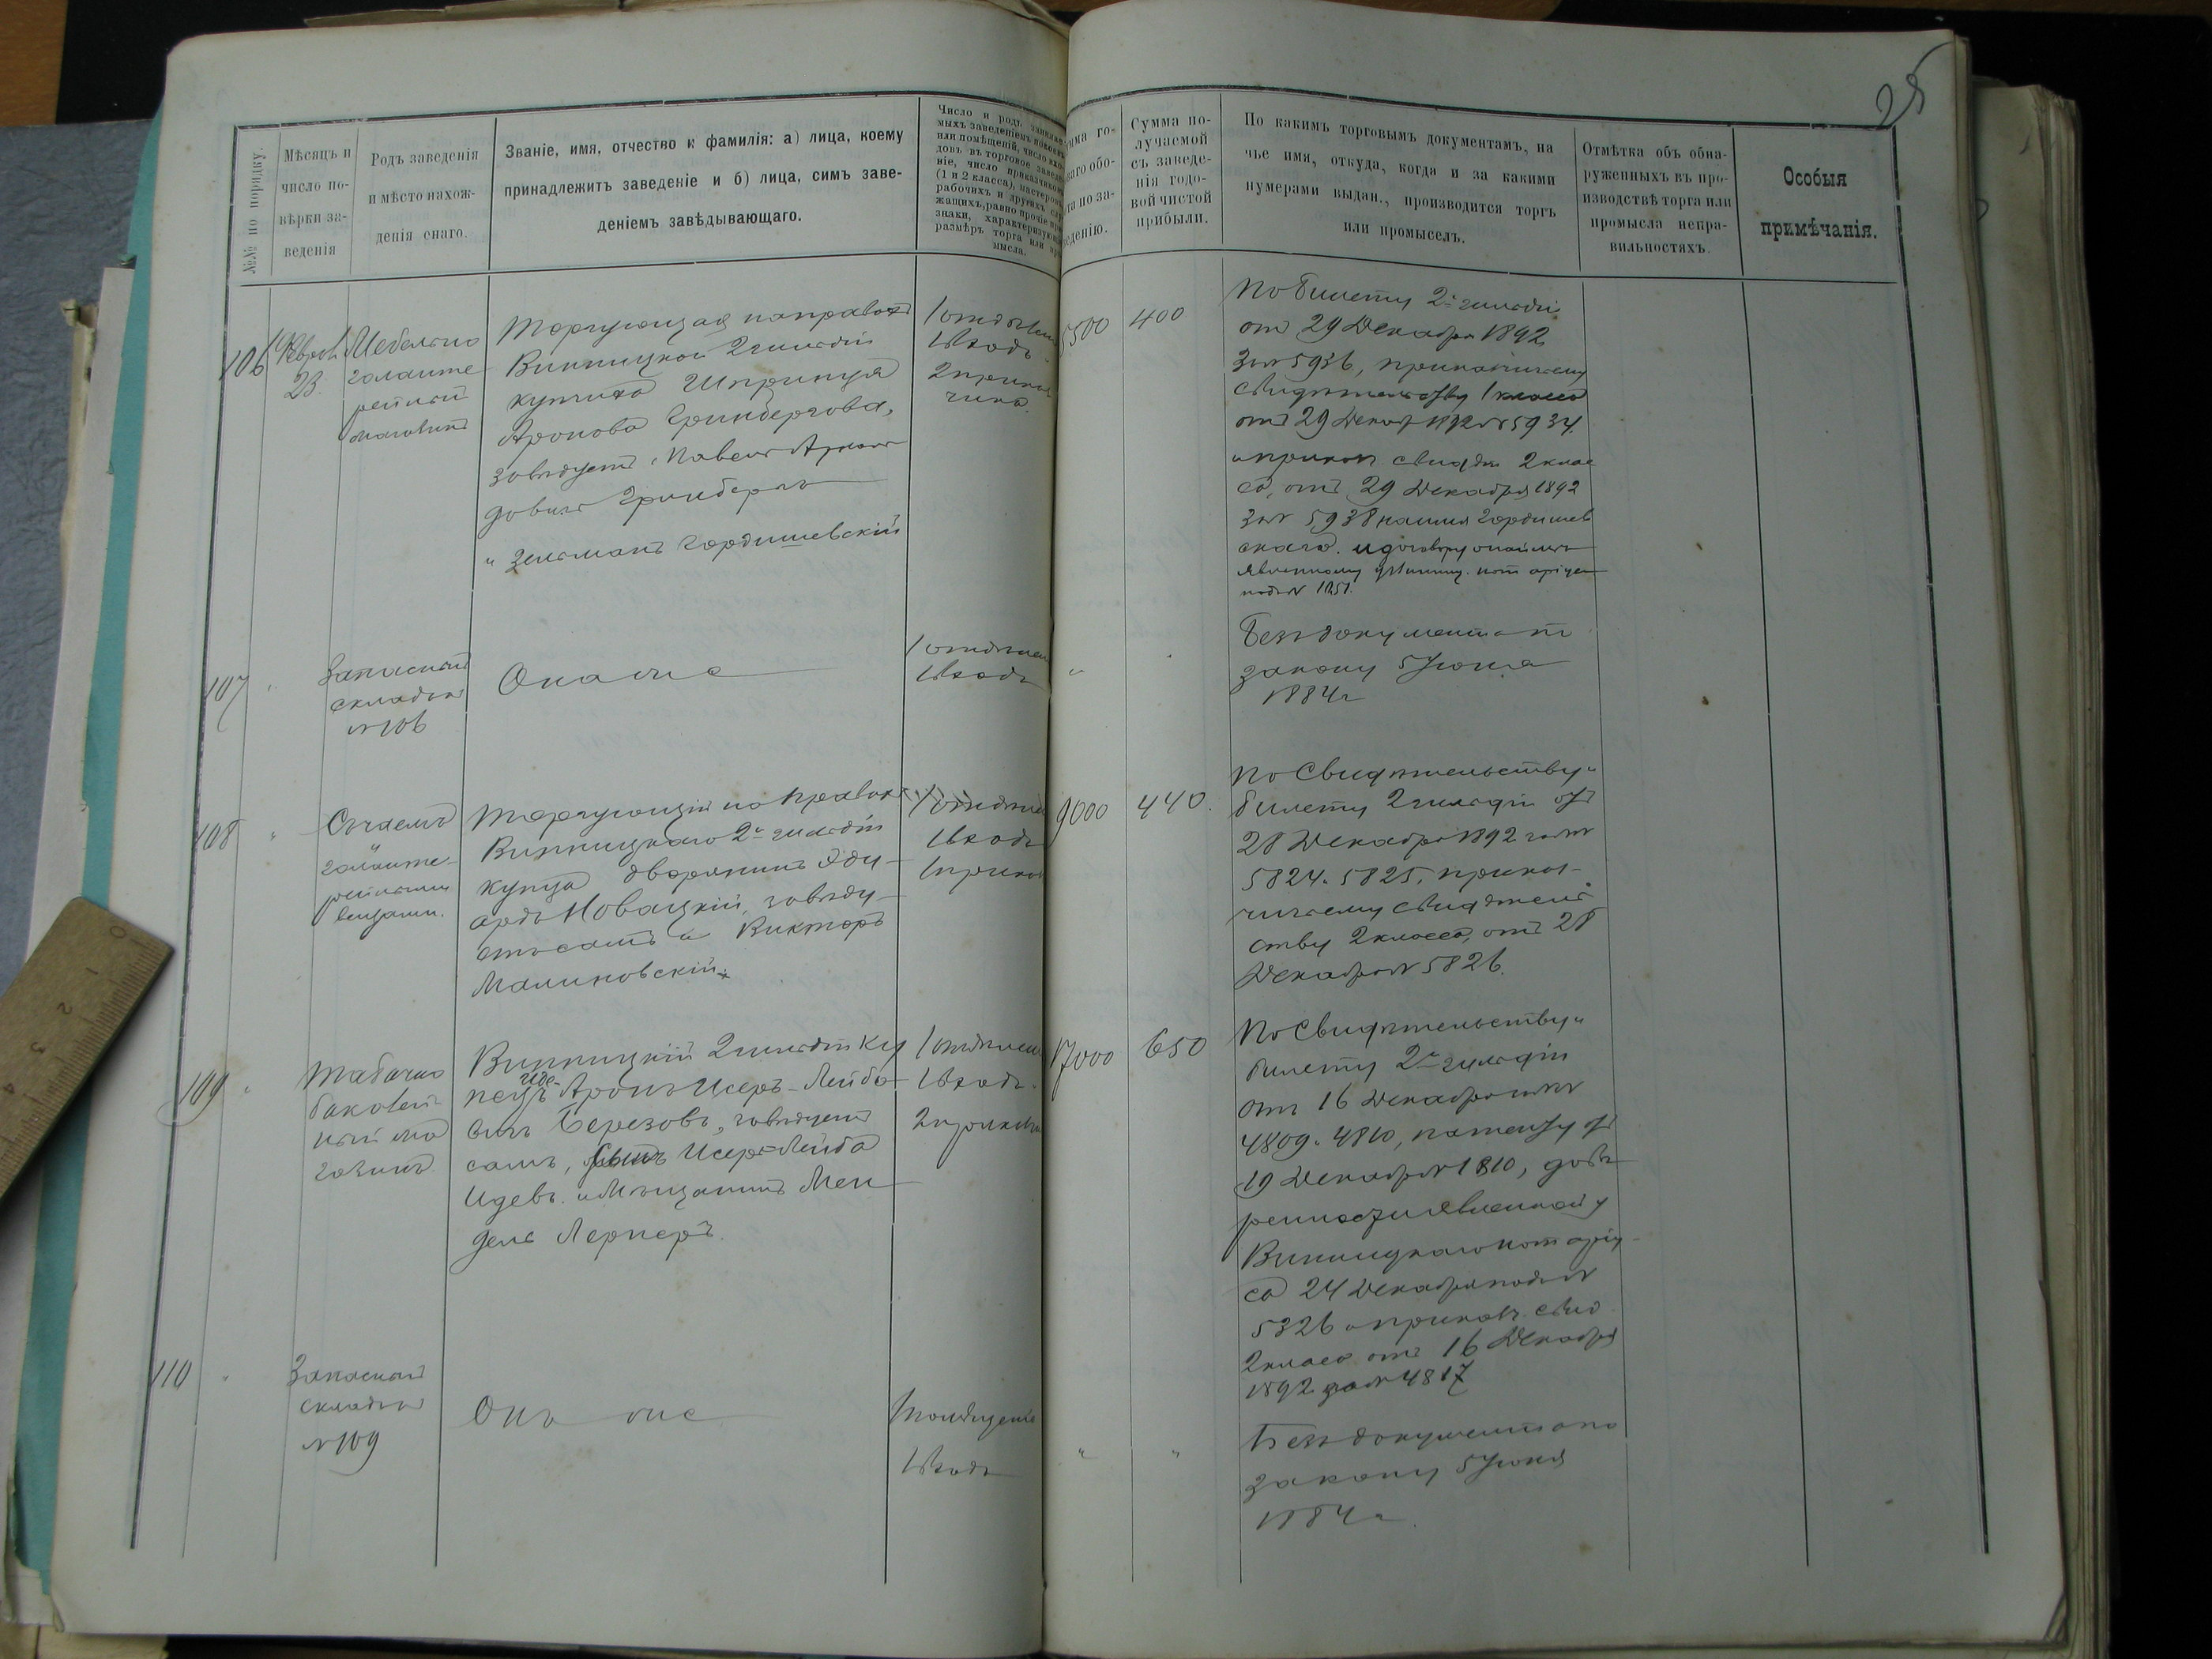 25
№№ по порядку.
Мѣсяцъ и
число по-
вѣрки за-
веденія
Родъ заведенія
и мѣсто нахож-
денія онаго.
Званіе, имя, отчество и фамилія: а) лица, коему
принадлежитъ заведеніе и б) лица, симъ заве-
деніемъ завѣдывающаго.
Число и родъ
мыхъ заведеніемъ
или помѣщеній, число
довъ въ торговое
ніе, число приказчиковъ
(1 и 2 класса), мастеровъ
рабочихъ и другихъ
жащихъ, равно прочіе
знаки,
размѣръ торга или
мысла.
Сумма по-
лучаемой
съ заведе-
нія годо-
вой чистой
прибыли.
По какимъ торговымъ документамъ, на
чье имя, откуда, когда и за какими
нумерами выдан., производится торгъ
или промыселъ.
Отмѣтка объ обна-
руженныхъ въ про-
изводствѣ торга или
промысла непра-
вильностяхъ.
Особыя
примѣчанія.
106
23
Мебельно
галанте-
рейный
магазинъ
Торгующая по правамъ
Винницкой 2 гильдіи
купчиха Шпринца
Аронова Гринбергова,
завѣдуетъ Павелъ
Гринбергъ
и Зельманъ Гордишевскій
1 входъ
5500
400
По билету 2й гильдіи
отъ 29 Декабря 1892
за № 5936, приказчичьему
свидѣтельству 1 класса
отъ 29 Декаб 1892 № 5934.
и прик свидѣт 2 клас
са, отъ 29 Декабря 1892
за № 5938 на имя Гордишев
скаго. и договору
явленному
107
"
Запасный
складъ къ
№ 106
Она же
1 входъ
"
Безъ документа по
закону 5 Іюня
1884 г
108
"
галанте-
рейными
вещами.
Торгующій по правамъ
Винницкаго 2й гильдіи
купца дворянинъ Эду-
ардъ Новацкій, завѣду-
етъ самъ и Викторъ
Малиновскій.
1 входъ
9000
440.
По Свидѣтельству и
билету 2 гильдіи отъ
28 Декабря 1892 за №
5824 и 5825, приказ-
чичьему свидѣтель
ству 2 класса, отъ 28
Декабря № 5826.
109
"
Табачно
бакалей-
ный ма
газинъ
Винницкій 2 гильдіи Ку
пецъ Аронъ Исеръ-Лейбо-
вичъ Березовъ, завѣдуетъ
самъ, Исеръ-Лейба
и Мѣщанинъ Мен-
дель Лернеръ.
1 входъ.
17000
650
По Свидѣтельству и
билету 2й гильдіи
отъ 16 Декабря за №
4809 и 4810, патенту отъ
19 Декабря № 1810, довѣ-
ренности явленной у
Винницкаго нотаріу-
са 24 Декабря подъ №
5326 и приказ. свид
2 класса отъ 16 Декабря
1892 за № 4817
110
"
Запасный
складъ къ
№ 109
Онъ же
1 помѣщеніе
1 входъ
"
"
Безъ документа по
закону 5 Іюня
1884 г.